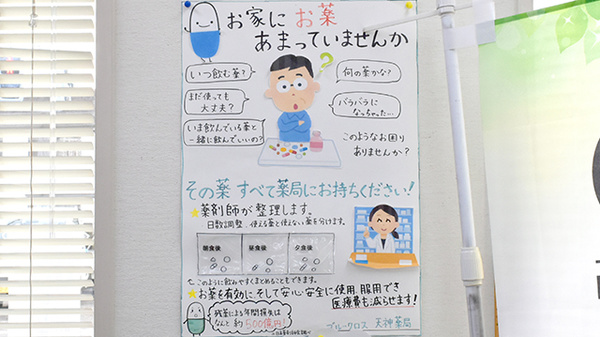 お家に お薬
あまっていませんか
いつ飲む薬?
何の薬かな?
まだ使っても
大丈夫?
バラバラに
なっちゃった…
いま飲んでいる薬と
一緒に飲んでいいの?
このようなお困り
ありませんか?
その薬 すべて薬局にお持ちください!
★薬剤師が整理します。
日数調整、使える薬と使えない薬を分けます。
朝食後
昼食後
夕食後
このように飲みやすくまとめることもできます。
★お薬を有効に、そして安心・安全に使用、服用でき
医療費も減らせます!
残薬による年間損失は
なんと 約500億円!
ブルークロス 天神薬局